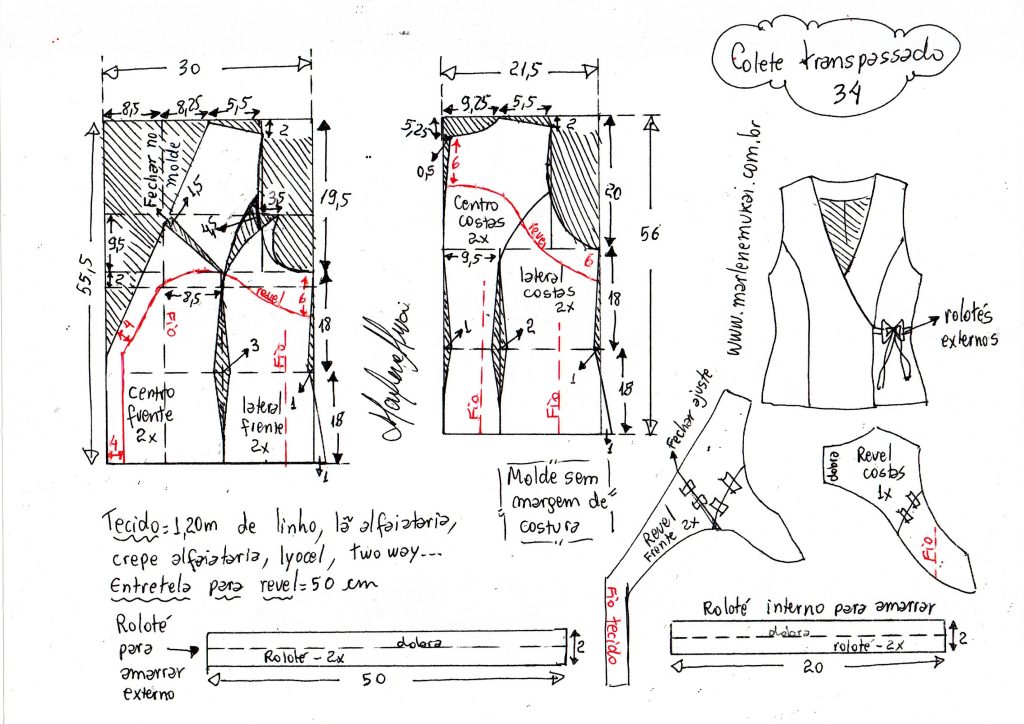 Colete transpassado
34
www.marlenemukai.com.br
30
8,5
8,25
5,5
2
Fechar no
molde
1,5
3,5
4,5
19,5
9,5
2
55,5
8,5
revel
6
18
4
Fio
Fio
3
1
centro
frente
2x
lateral
frente
2x
18
4
1
21,5
9,25
5,5
5,25
2
0,5
6
20
56
centro
costas
2x
revel
9,5
6
lateral
costas
2x
18
1
2
1
Fio
Fio
18
1
Marlene Mukai
rolotés
externos
Molde sem
margem de
costura
Fechar ajuste
Revel
Frente 2x
Fio tecido
dobra
Revel
costas
1x
Fio
Tecido=1,20m de linho, lã alfaiataria,
crepe alfaiataria, lyocel, two way...
Entretela para revel=50 cm
Roloté
para
amarrar
externo
dobra
Roloté - 2x
2
50
Roloté interno para amarrar
dobra
roloté - 2x
2
20